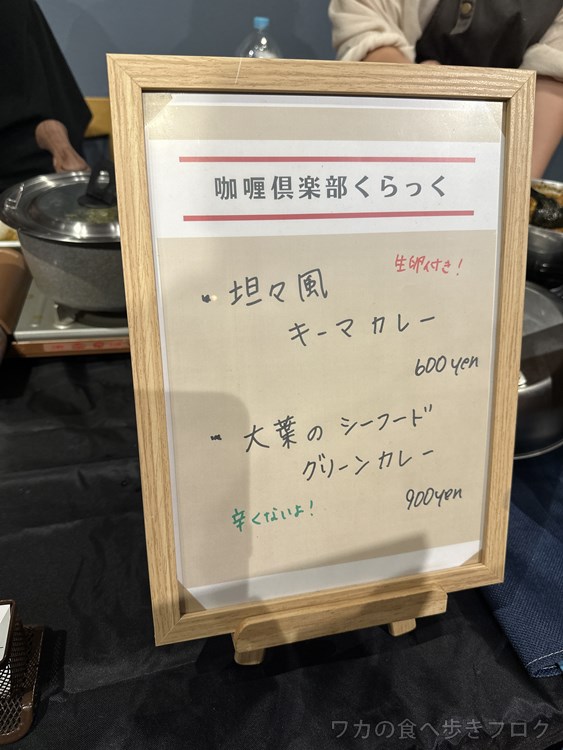 咖喱倶楽部くらっく
生卵付き!
・坦々風
キーマカレー
600yen
・大葉のシーフード
グリーンカレー
900yen
辛くないよ!
ワカの食べ歩きブログ